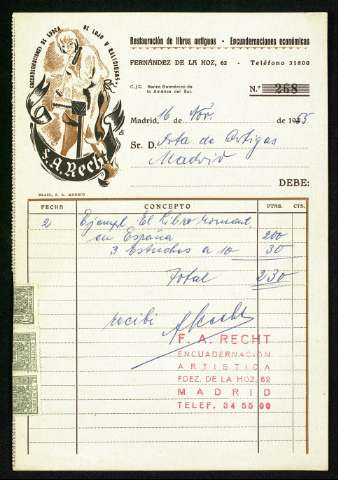 ENCUADERNACIONES DE EPOCA DE LUJO Y EDITORIAL
F. A. Recht
Restauración de libros antiguos - Encuadernaciones económicas
FERNÁNDEZ DE LA HOZ, 62 - Teléfono 31800
C./C. Banco Germánico de
la América del Sur.
N.º 268
Madrid, 16 de Nov. de 1935
Sr. D. Arta. de Artigas
Madrid
DEBE:
FECHA CONCEPTO PTAS. CTS.
2 Ejempl. El Libro Romant.
en España 200
3 Estuches a 10 30
Total 230
recibí
F. A. RECHT
ENCUADERNACIÓN
ARTISTICA
FDEZ. DE LA HOZ, 62
MADRID
TELEF. 34 55 00